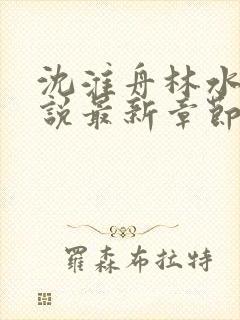 沈淮舟林水
說最新章節
羅森布拉特